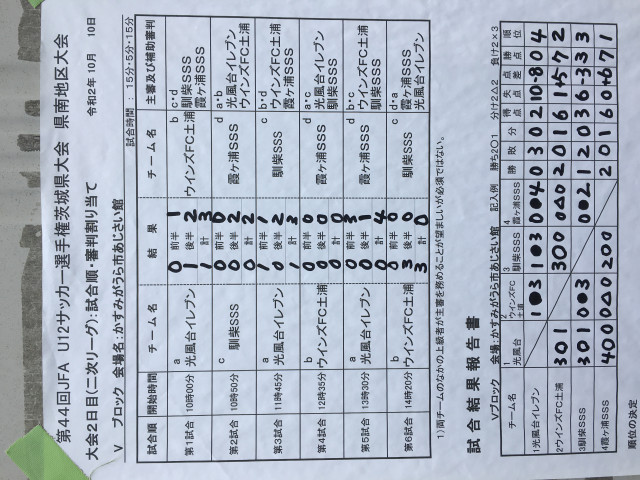 第44回JFA U12サッカー選手権茨城県大会 県南地区大会
大会2日目(二次リーグ):試合順・審判割り当て 令和2年10月 10日
V ブロック 会場名:かすみがうら市あじさい館 試合時間: 15分-5分-15分
試合順 開始時間 チーム名 結果 チーム名 主審及び補助審判
第1試合 10時00分 a 光風台イレブン 0 前半 1 1 後半 2 1 計 3 b ウインズFC土浦 c・d 馴柴SSS 霞ヶ浦SSS
第2試合 10時50分 c 馴柴SSS 0 前半 0 0 後半 2 0 計 2 d 霞ヶ浦SSS a・b 光風台イレブン ウインズFC土浦
第3試合 11時45分 a 光風台イレブン 1 前半 1 0 後半 2 1 計 3 c 馴柴SSS b・d ウインズFC土浦 霞ヶ浦SSS
第4試合 12時35分 b ウインズFC土浦 0 前半 0 0 後半 0 0 計 0 d 霞ヶ浦SSS a・c 光風台イレブン 馴柴SSS
第5試合 13時30分 a 光風台イレブン 0 前半 3 0 後半 1 0 計 4 d 霞ヶ浦SSS b・c ウインズFC土浦 馴柴SSS
第6試合 14時20分 b ウインズFC土浦 0 前半 0 3 後半 0 3 計 0 c 馴柴SSS d・a 霞ヶ浦SSS 光風台イレブン
1)両チームのなかの上級者が主審を務めることが望ましいが必須ではない。
試合結果報告書
Vブロック 会場名:かすみがうら市あじさい館 記入例 勝ち2○1 分け2△2 負け2×3
チーム名 1 光風台 2 ウインズFC土浦 3 馴柴SSS 4 霞ヶ浦SSS 勝 敗 分 得点 失点 点差 勝点 順位
1光風台イレブン 1●3 1●3 0●4 0 3 0 2 10 -8 0 4
2ウインズFC土浦 3○1 3○0 0△0 2 0 1 6 1 +5 7 2
3馴柴SSS 3○1 0●3 0●2 1 2 0 3 6 -3 3 3
4霞ヶ浦SSS 4○0 0△0 2○0 2 0 1 6 0 +6 7 1
順位の決定